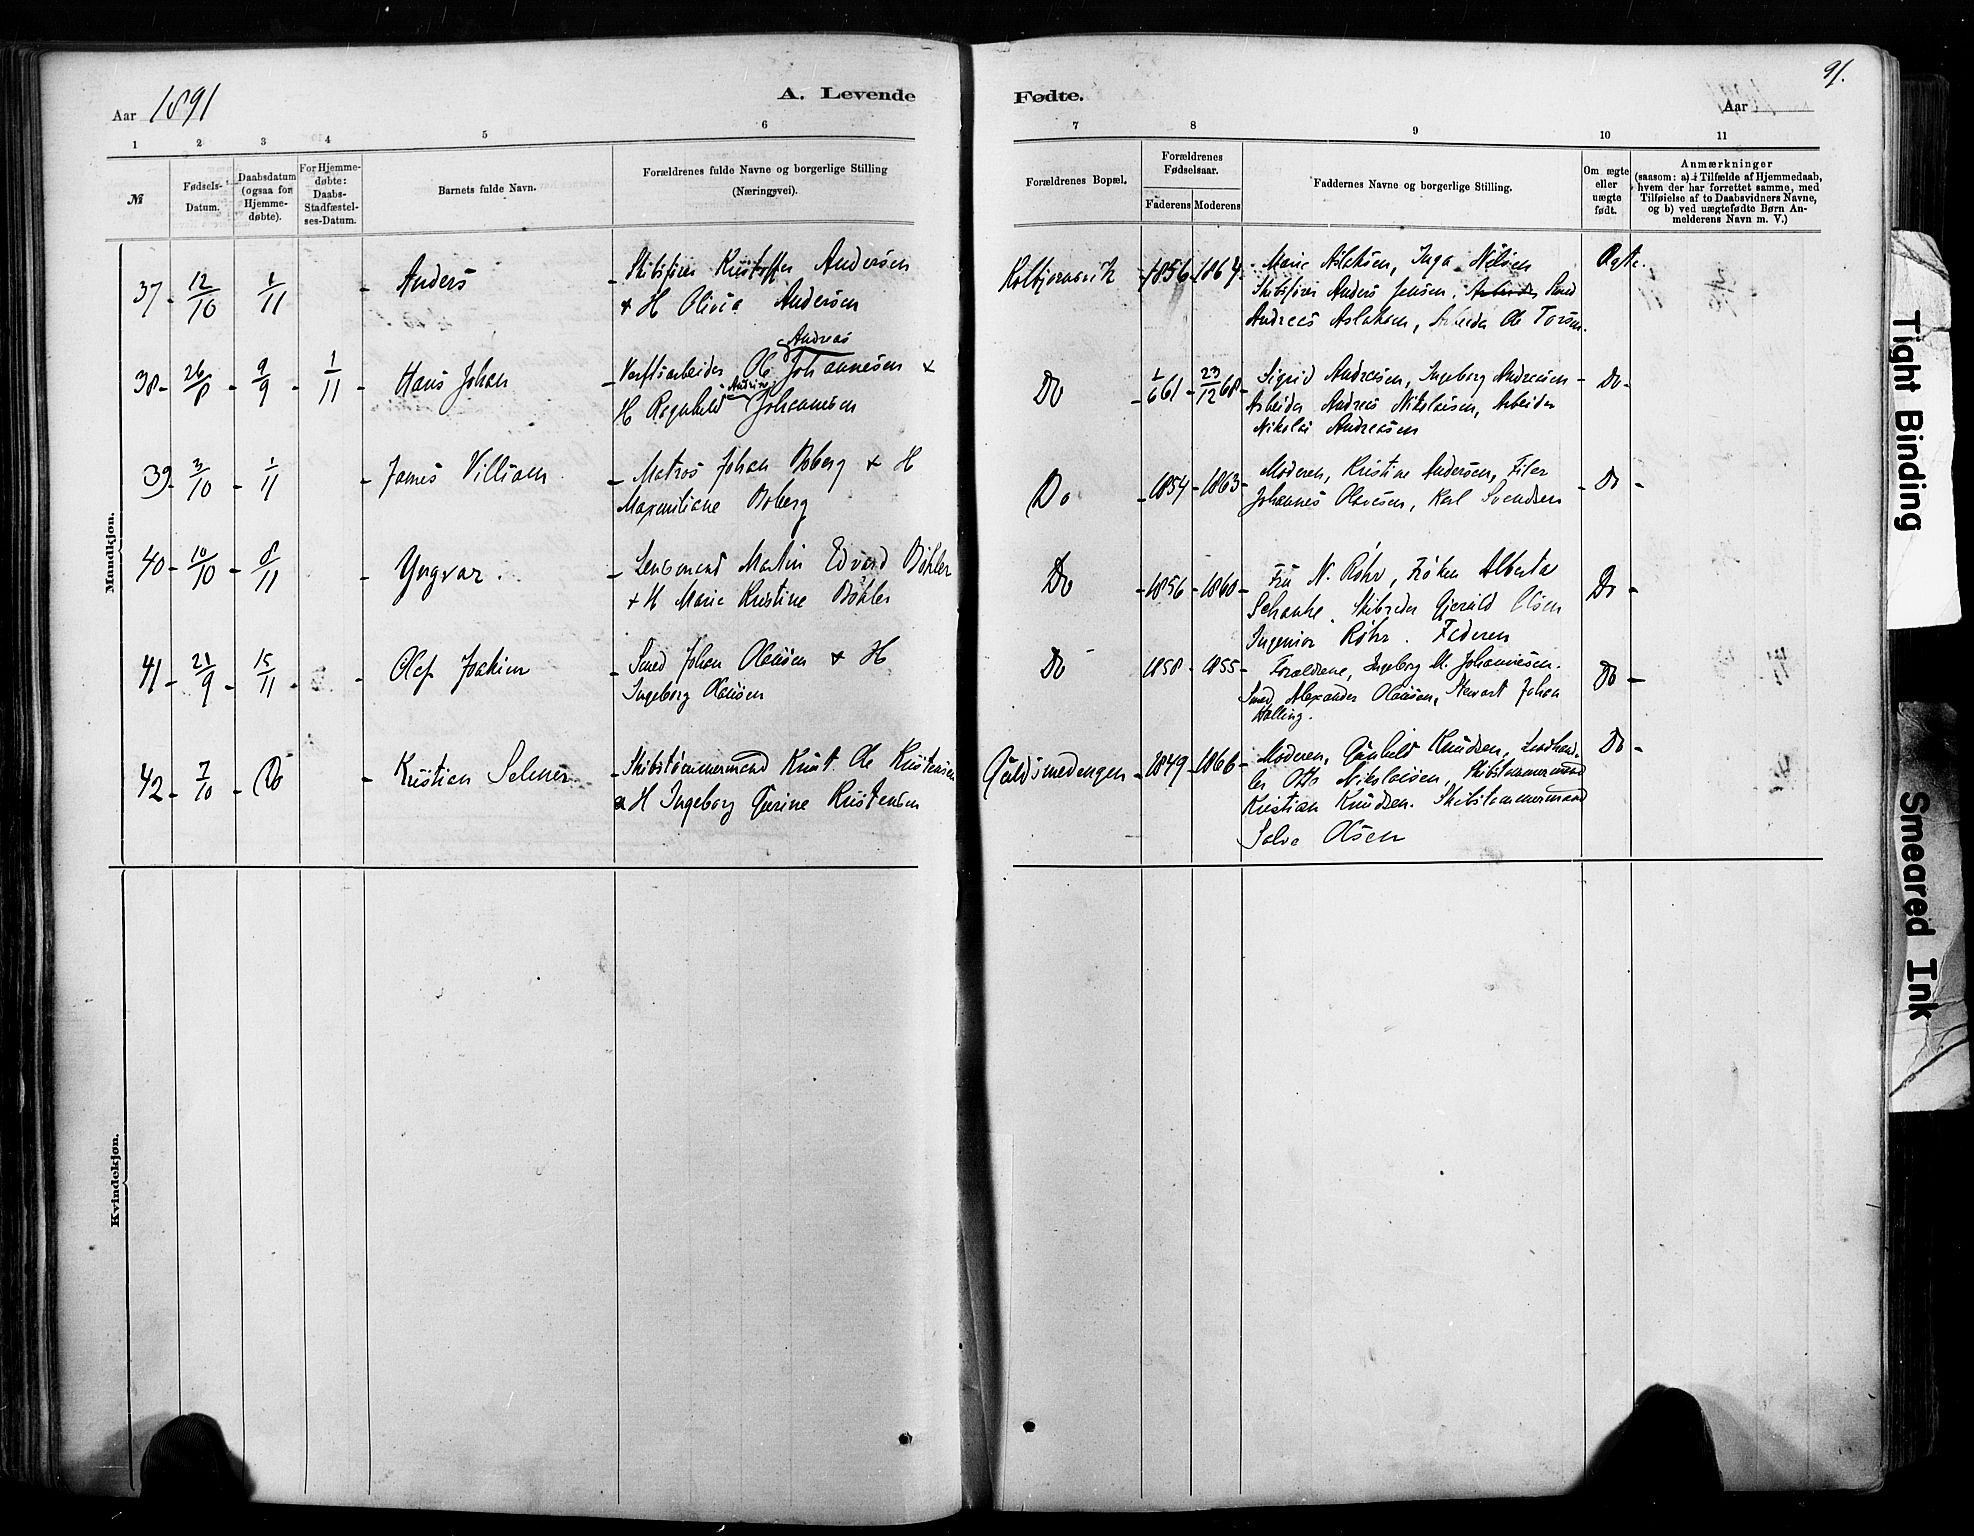 Aar 1891
A. Levende
Fødte.
Aar
91.
1 2 3 4 5 6 7 8 9 10 11
№
Fødsels-Datum.
Daabsdatum (ogsaa for Hjemme-døbte).
For Hjemme-døbte: Daabs-Stadfæstel-ses-Datum.
Barnets fulde Navn.
Forældrenes fulde Navne og borgerlige Stilling
(Næringsvei).
Forældrenes Bopæl.
Forældrenes Fødselsaar.
Faderens Moderens
Faddernes Navne og borgerlige Stilling.
Om ægte eller uægte født.
Anmærkninger
(saasom: a) i Tilfælde af Hjemmedaab,
hvem der har forrettet samme, med
Tilføielse af to Daabsvidners Navne,
og b) ved uægtefødte Børn An-
melderens Navn m. V.)
Mandkjøn.
37 - 12/10 1/11 - Anders Skibsfører Kristoffer Andersen
+ H Olivia Andersen
Kolbjørnsvik - 1856 - 1864 - Marie Aslaksen, Inga Nilsen
Skibsfører Anders Jensen, Arbeider Smed
Andreas Aslaksen, Arbeider Ole Torsen.
Ægte.
Andreas
38 - 26/8 - 9/9 - 1/11 - Hans Johan - Verftsarbeider Ole Johannesen +
Andrine
H Ragnhild Johannesen
Do - 1/6 61 - 23/12 68 - Sigrid Andreasen, Ingeborg Andreasen - Do -
Arbeider Andreas Nikolaisen, Arbeider
Nikolai Andreasen
39 - 3/10 - 1/11 - James Villiam - Matros Johan Boberg + H
Maxmiliane Boberg
Do - 1854 - 1863 - Moderen, Kristine Andersen, Filer - Do -
Johannes Olavesen, Karl Svendsen
40 - 10/10 - 8/11 - Yngvar. - Lensmand Martin Edvard Bøhler
+ H Marie Kristine Bøhler
Do - 1856 - 1860 - Fru N. Røhr, Frøken Alberta Do -
Schanke. Skibsreder Gjeruld Olsen
Ingeniør Røhr. Faderen
41 - 21/9 - 15/11 - - Olaf Joakim - Smed Johan Olausen + H
Ingeborg Olausen
Do 1858 - 1855 - Forældrene, Ingeborg M. Johannesen. Do -
Smed Alexander Olausen, Stewart Johan
Halling.
42 - 7/10 - Do - Kristian Selmer - Skibstømmermand Krist. Ole Kristensen
+ H Ingeborg Gurine Kristensen
Guldsmedengen - 1849 - 1866 - Moderen, Gunhild Knudsen, Landhand- Do -
ler Otto Nikolaisen, Skibstømmermand
Kristian Knudsen. Skibstømmermand
Salve Olsen
Kvindekjøn.
Tight Binding
Smeared Ink